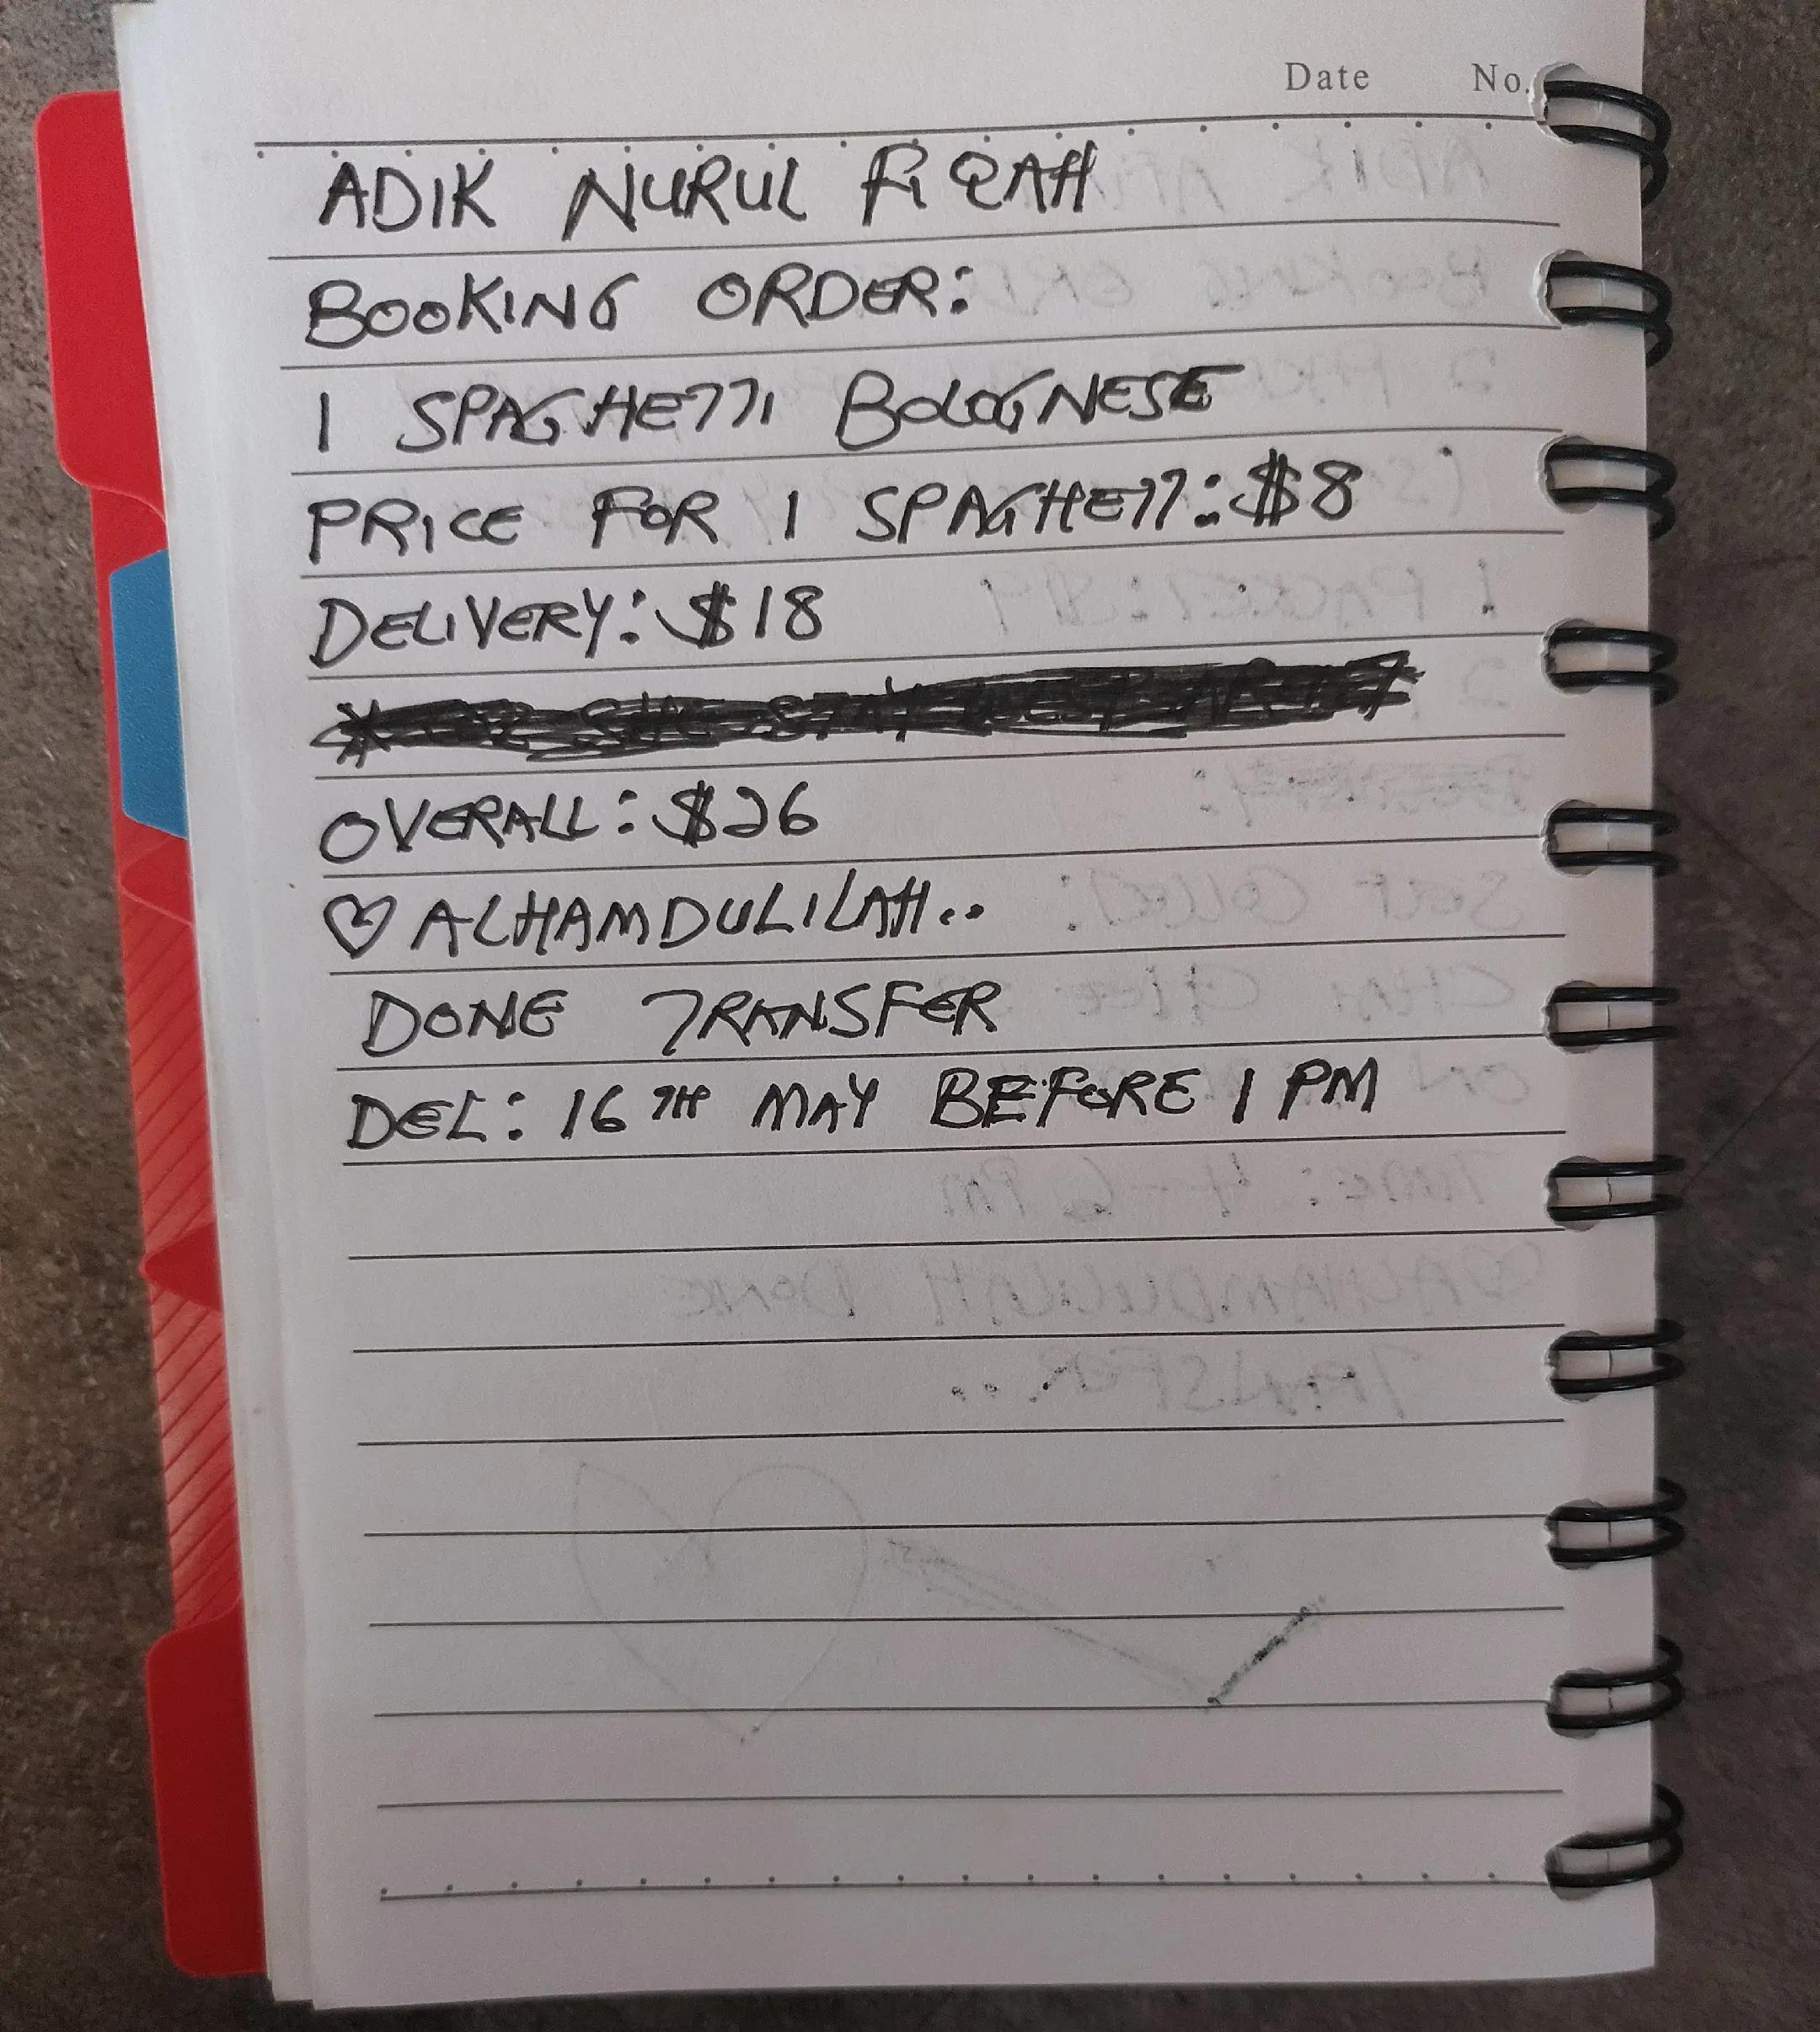 Date No.
ADIK NURUL FIQAH
BOOKING ORDER:
1 SPAGHETTI BOLOGNESE
PRICE FOR 1 SPAGHETTI: $8
DELIVERY: $18
OVERALL: $26
♡ ALHAMDULILAH..
DONE TRANSFER
DEL: 16TH MAY BEFORE 1 PM